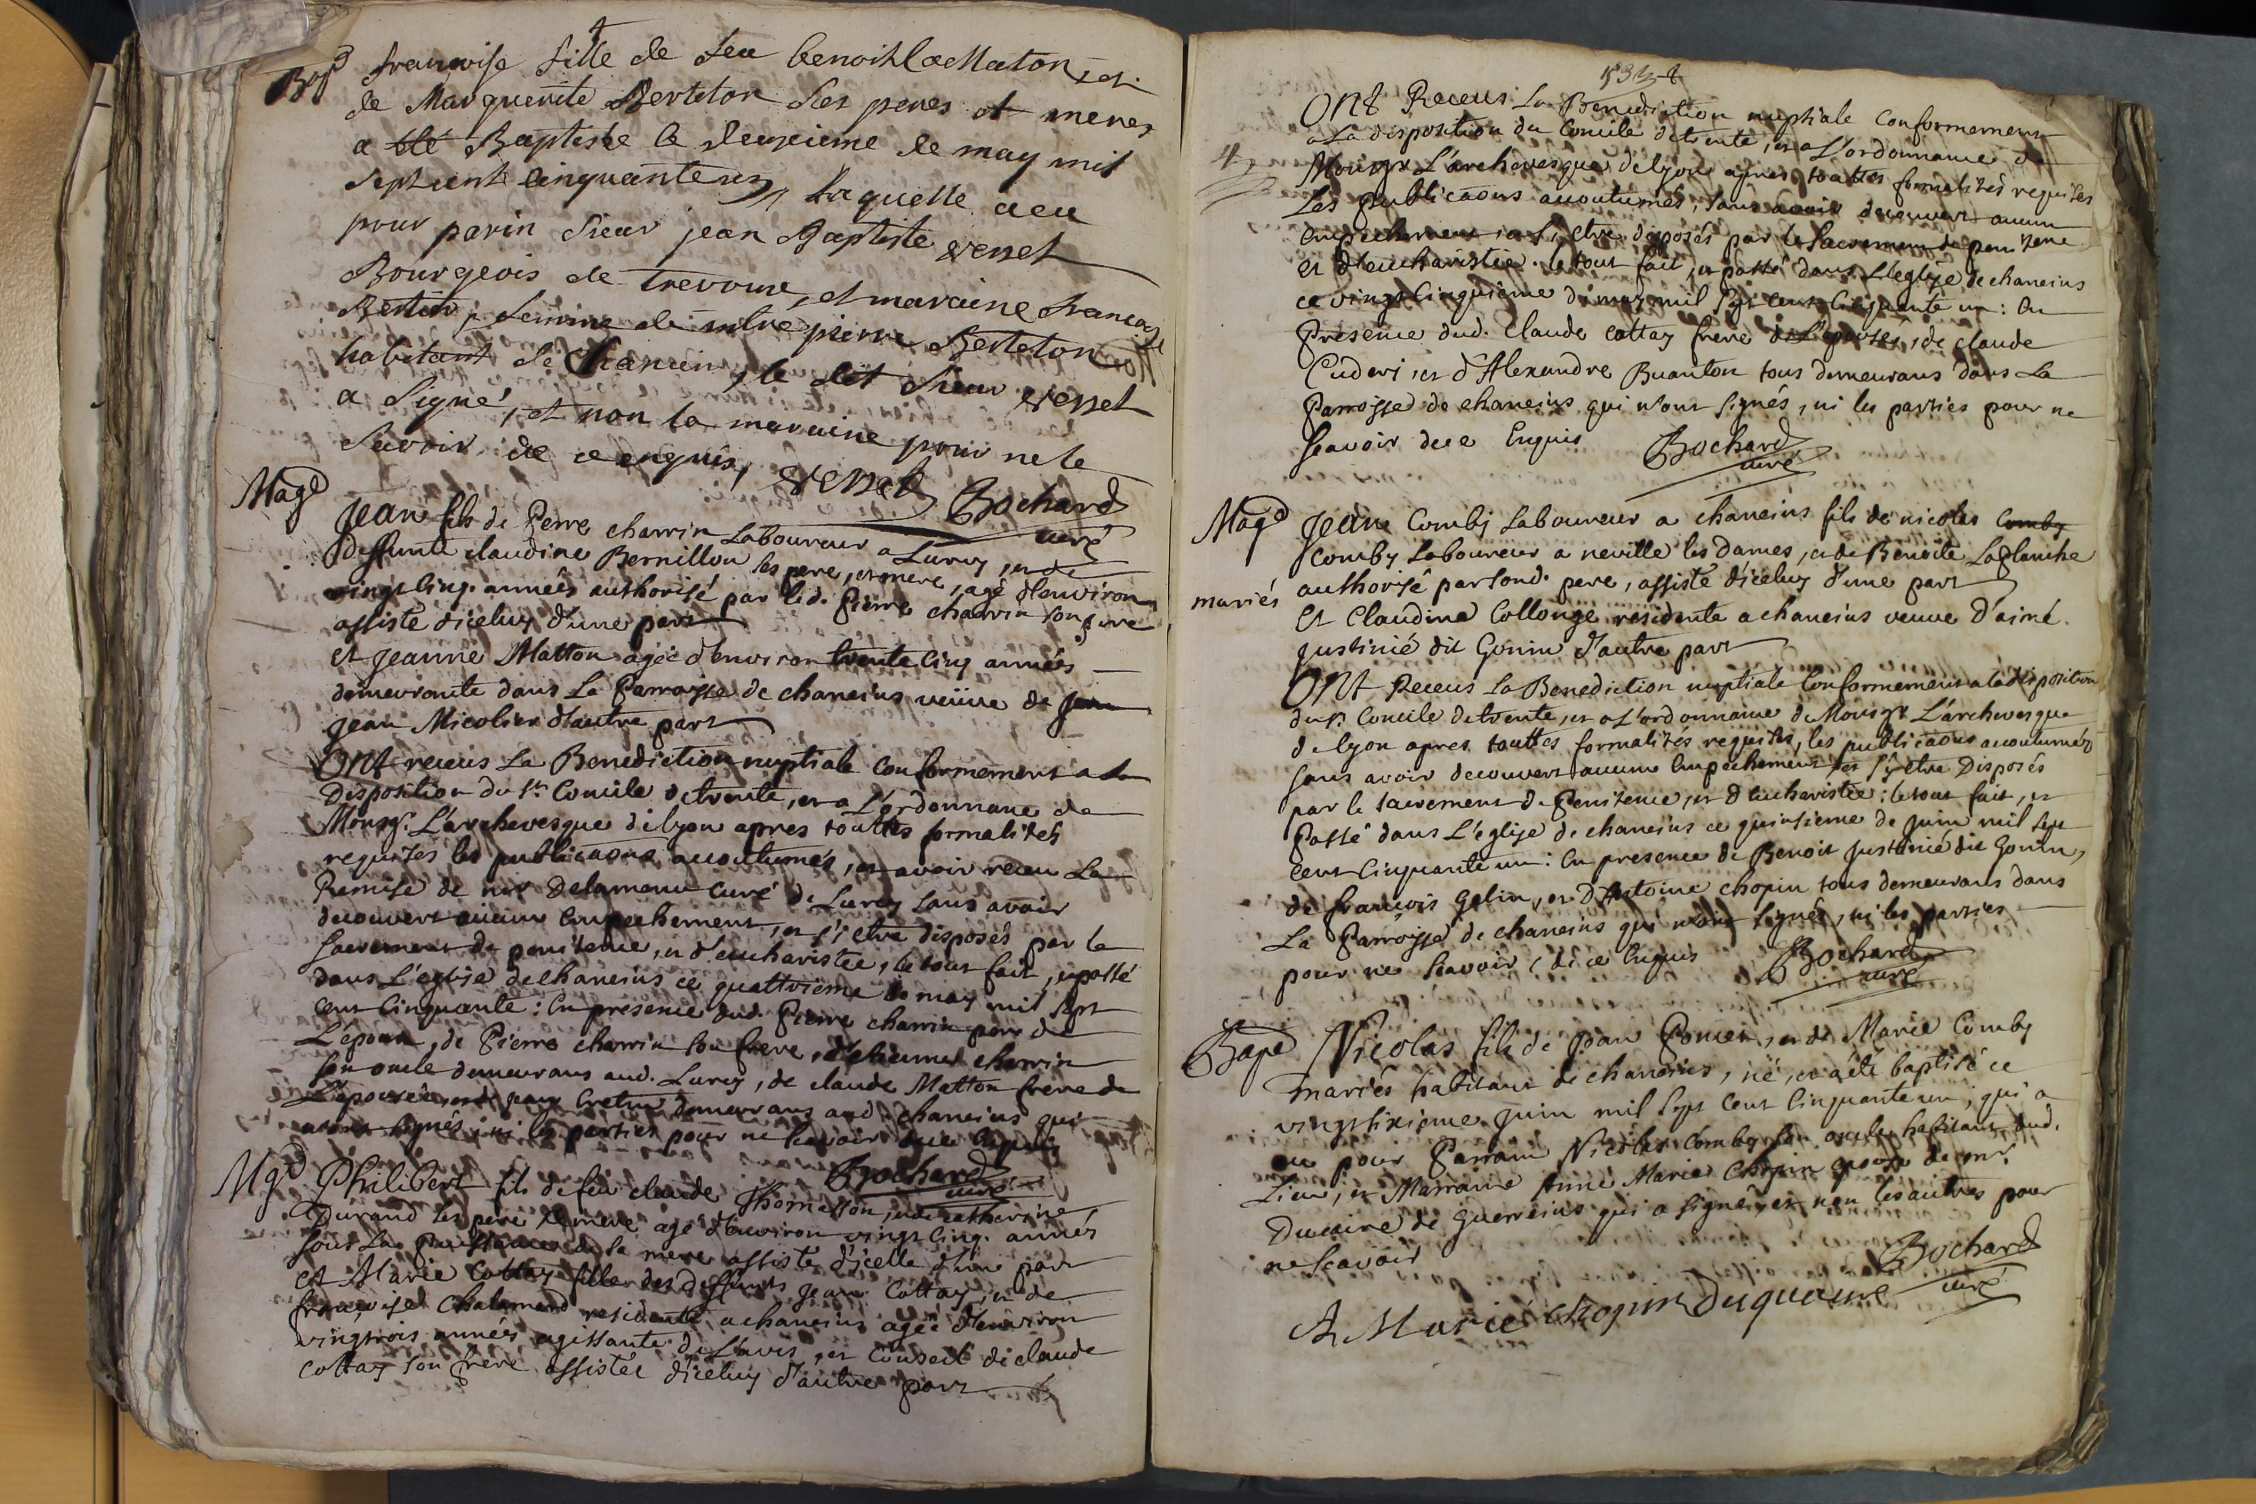 4
Bap françoise fille de feu benoit La Maton, et
de Marguerite Berteton ses peres et meres
a eté Baptisée le deuxieme de may mil
sept cent cinquante un, laquelle a eu
pour parin sieur jean Baptiste vernet
Bourgeois de trevoux, et maraine françoise
femme de mtre pierre Berteton
habitant de Chanein, le dit sieur vernet
a signé, et non la maraine pour ne le
scavoir de ce enquis, vernet Bochard
curé
Mage Jean fils de Pierre charrin Laboureur a Lurcy, et de
deffunte claudine Bernillon ses pere, et mere, agé d'environ
vingt cinq années authorisé par led. Pierre charrin son pere
assisté diceluy d'une part
et Jeanne Matton agée d'environ trente cinq années
demeurante dans La Parroisse de chaneins veüve de
jean Micolier d'autre part
Ont receus La Benediction nuptiale conformement a La
Disposition du st. Concile de trente, et a L'ordonnance de
Monsgr. L'archevesque de lyon apres touttes formalités
requises les publicaons accoutumés, et avoir receu La
Remise de mr Delamenu curé de Lurcy sans avoir
decouvert aucun empechement, et s'y etre disposés par le
sacrement de penitence, et d'eucharistie, le tout fait, et passé
dans L'eglise de chaneins ce quattrieme de may mil sept
cent cinquante : En presence dud. Pierre charrin pere de
L'epoux, de Pierre charrin son frere, d'etienne charrin
son oncle demeurans aud. Lurcy, de claude Matton frere de
L'epousée, et de jean demeurans aud. chaneins qui
n'ont signés, ni les parties pour ne scavoir de ce enquis
Bochard
curé
Mge Philibert fils de feu claude Thomasson, et de catherine
Durand ses pere et mere agé d'environ vingt cinq années
sous La Puissance de sa mere assisté d'icelle d'une part
et Marie Cottay fille des Deffunts Jean Cottay, et de
françoise Chalamard residente a chaneins agée d'environ
vingt trois années agissante de L'avis, et conseil de claude
Cottay son frere assistée d'iceluy d'autre part
Ont Receus La Benediction nuptiale conformement
a La disposition du Concile de trente, et a L'ordonnance de
Monsgr L'archevesque de lyon apres touttes formalités requises
Les publicaons accoutumés, sans avoir decouvert aucun
empechement, et s'y etre disposés par le sacrement de penitence
et d'eucharistie. le tout fait, et passé dans L'eglise de chaneins
ce vingt cinquieme de may mil sept cent cinquante un : En
Presence dud. Claude cottay frere de L'epousée, de claude
Cuderi, et d'Alexandre Buanton tous demeurans dans La
Parroisse de chaneins qui n'ont signés, ni les parties pour ne
scavoir de ce Enquis Bochard
curé
Mage Jean Comby Laboureur a chaneins fils de nicolas Comby
comby Laboureur a neville les Dames, et de Benoite Laplanche
mariés authorisé par sond. pere, assisté d'iceluy d'une part
Et Claudine Collonge residente a chaneins veuve d'aimé
justinié dit Gonin d'autre part
Ont Receus La Benediction nuptiale conformement a la disposition
du st Concile de trente, et a L'ordonnance de Monsgr L'archevesque
de lyon apres touttes formalités requises, les publicaons accoutumés
sans avoir decouvert aucun empechement, et s'y etre Disposés
par le sacrement de Penitence, et d'eucharistie : le tout fait, et
Passé dans L'eglise de chaneins ce quinsieme de juin mil sept
cent cinquante un : En presence de Benoit justinié dit Gonin,
de francois Gelin, et D'Antoine chopin tous demeurans dans
La Parroisse de chaneins qui n'ont signés, ni les parties
pour ne scavoir, de ce Enquis Bochard
curé
Bape Nicolas fils de jean Pomet, et de Marie Comby
mariés habitans de chaneins, né, et a été baptisé ce
vingt sixieme juin mil sept cent cinquante un, qui a
eu pour Parrain Nicolas Comby son oncle habitant dud.
Lieu, et Marraine Anne Marie Chopin epouse de mr.
Ducaire de Guerreins qui a signé, et non les autres pour
ne scavoir Bochard
curé
A Marie chopin Duquaire